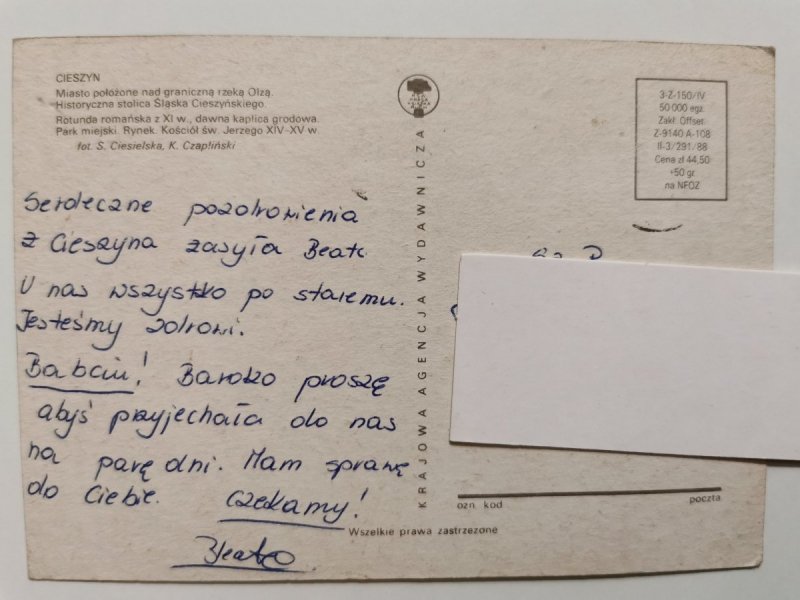 CIESZYN
Miasto położone nad graniczną rzeką Olzą.
Historyczna stolica Śląska Cieszyńskiego.
Rotunda romańska z XI w., dawna kaplica grodowa.
Park miejski. Rynek. Kościół św. Jerzego XIV-XV w.
fot. S. Ciesielska, K. Czapliński
Serdeczne pozdrowienia
z Cieszyna zasyła
U nas wszystko po staremu.
Jesteśmy zdrowi.
Babciu! Bardzo proszę
abyś przyjechała do nas
na parę dni. Mam sprawę
do Ciebie. Czekamy!
Beata
KRAJOWA AGENCJA WYDAWNICZA
3-Z-150/IV
50 000 egz.
Zakł. Offset.
Z-9140 A-108
II-3/291/88
Cena zł 44,50
+50 gr
na NFOZ
ozn. kod poczta
Wszelkie prawa zastrzeżone